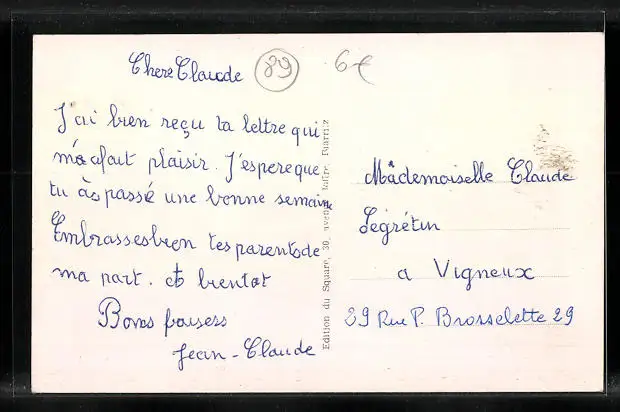 Chere Claude
89
6€
J'ai bien reçu ta lettre qui
m'a fait plaisir. J'espere que
tu às passé une bonne semaine
Embrasses bien tes parents de
ma part. à bientot
Bons baisers
Jean-Claude
Edition du Square, 30, avenue Biarritz
Mâdemoiselle Claude
Segrétin
a Vigneux
29 Rue P. Brosselette 29